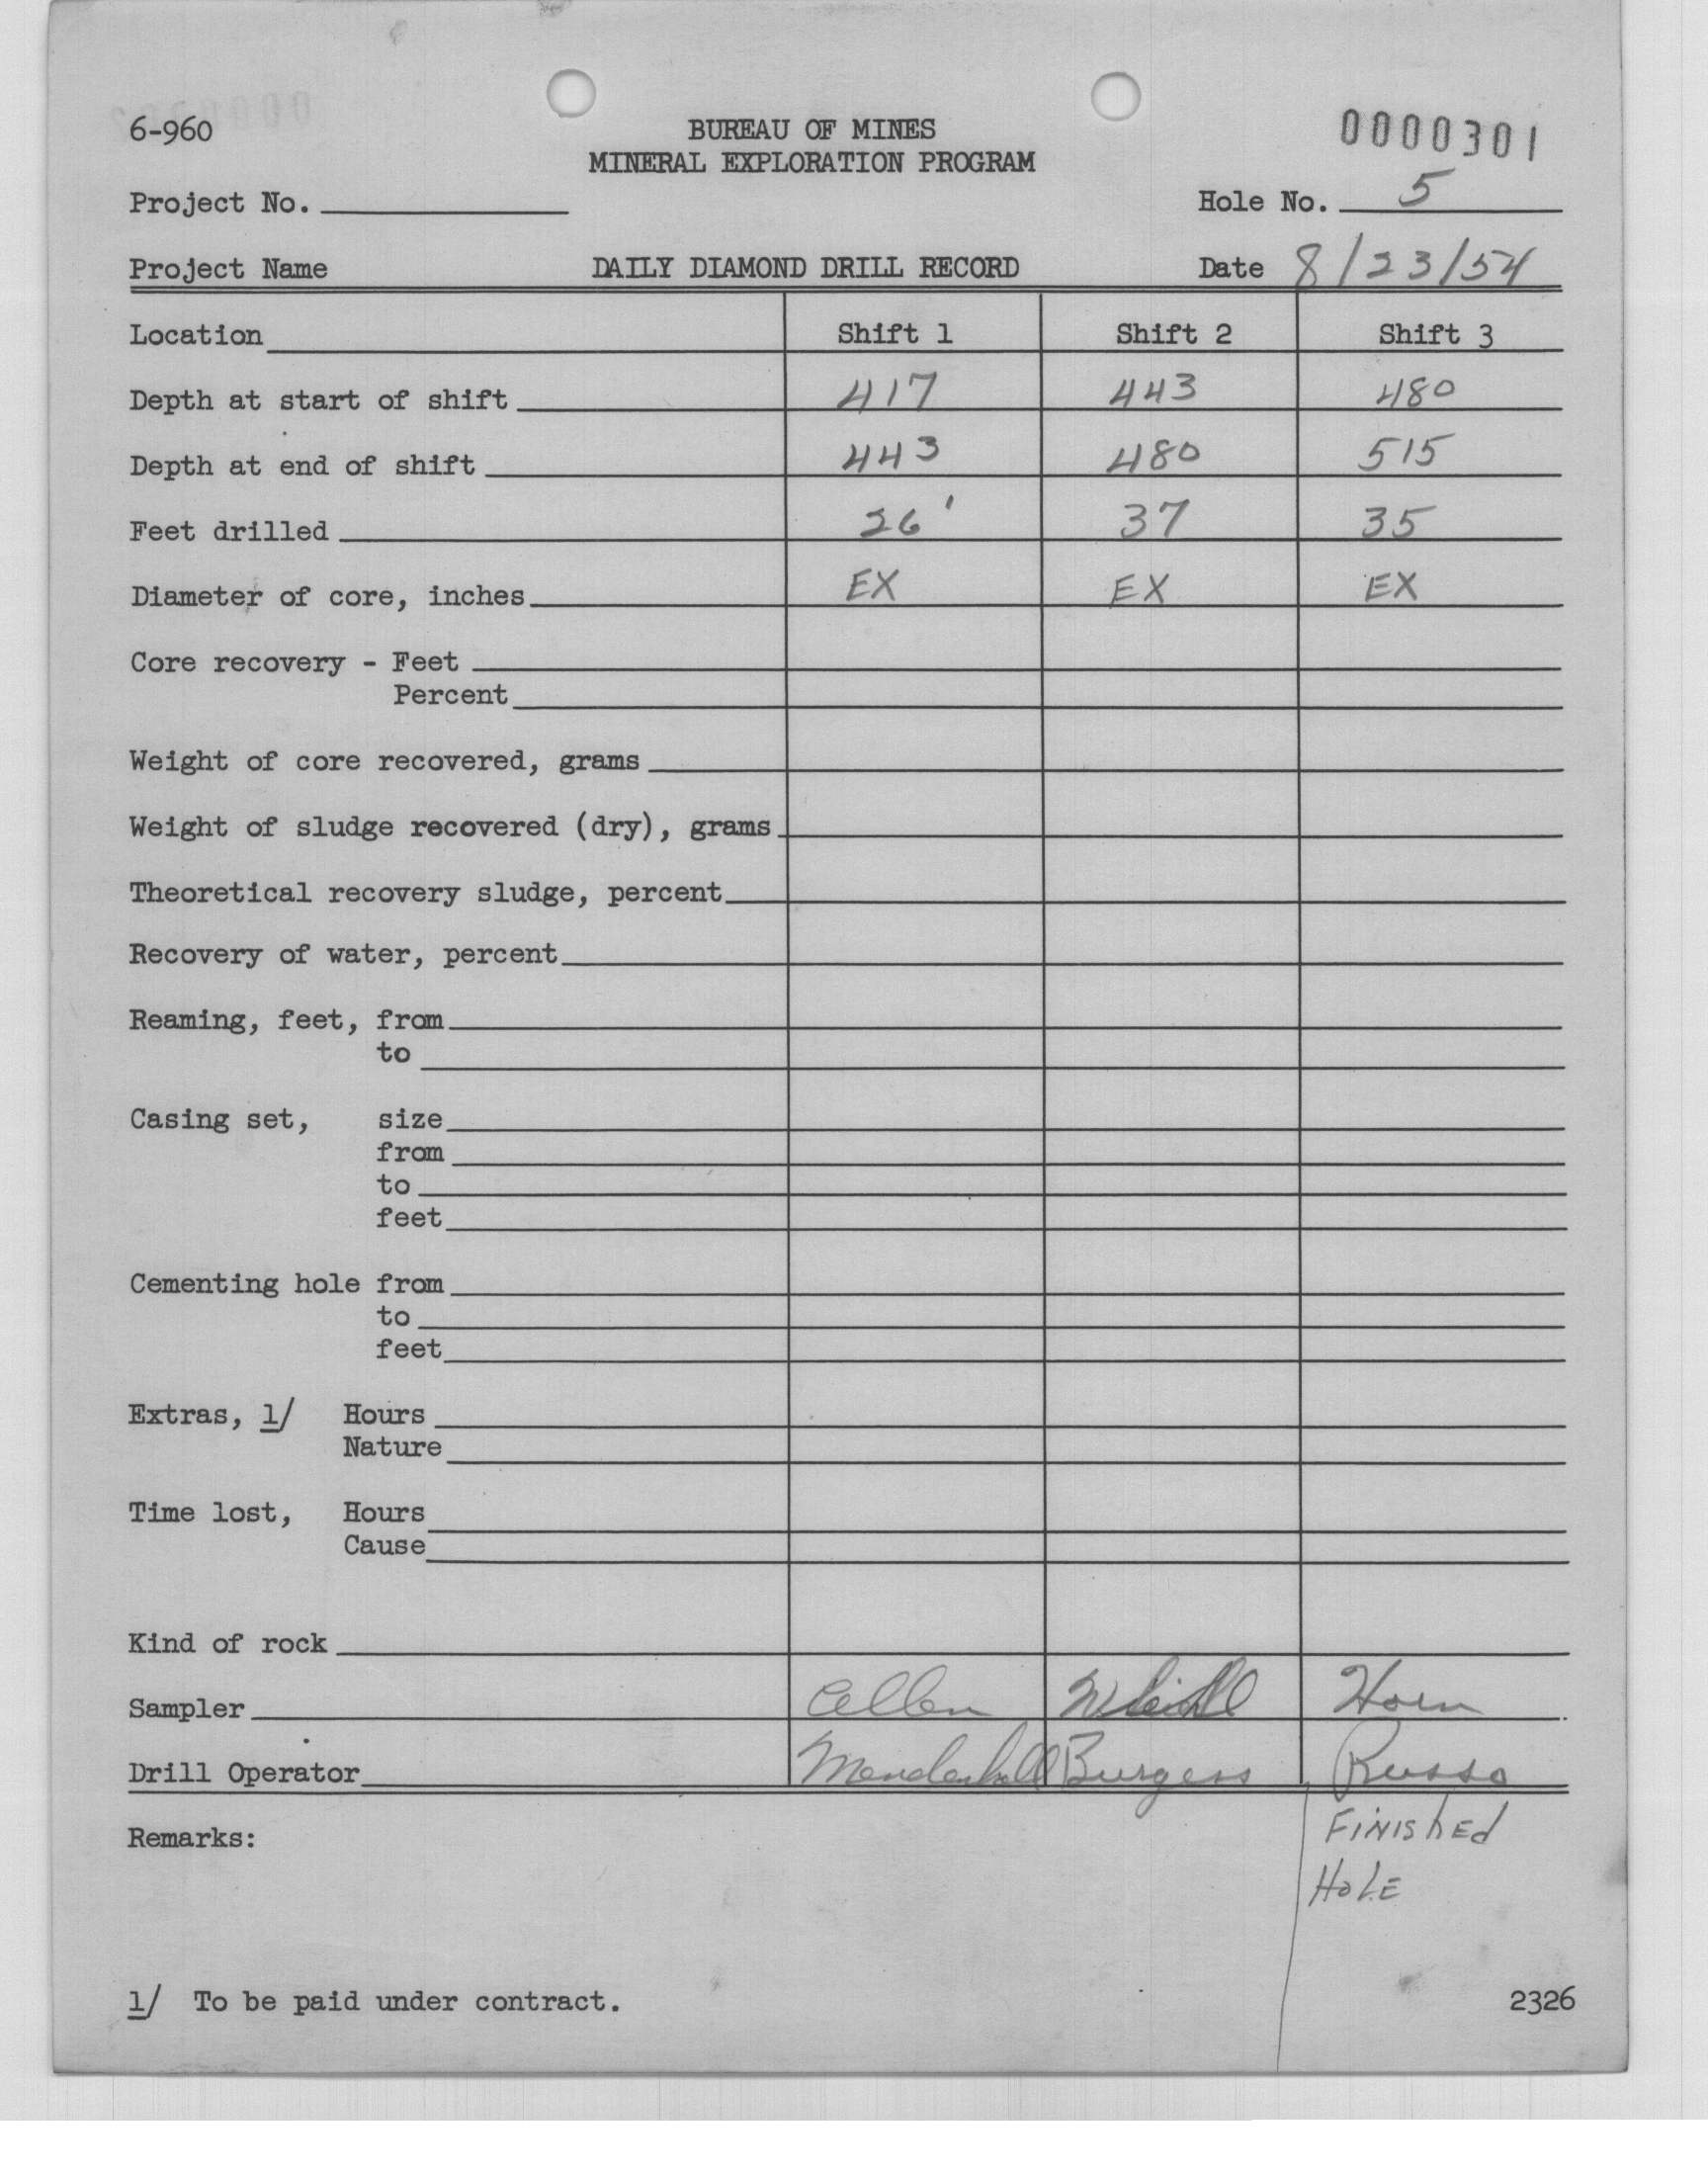 6-960 BUREAU OF MINES 0000301
MINERAL EXPLORATION PROGRAM
Project No. Hole No. 5
Project Name DAILY DIAMOND DRILL RECORD Date 8/23/54
Location Shift 1 Shift 2 Shift 3
Depth at start of shift 417 443 480
Depth at end of shift 443 480 515
Feet drilled 26' 37 35
Diameter of core, inches EX EX EX
Core recovery - Feet
Percent
Weight of core recovered, grams
Weight of sludge recovered (dry), grams
Theoretical recovery sludge, percent
Recovery of water, percent
Reaming, feet, from
to
Casing set, size
from
to
feet
Cementing hole from
to
feet
Extras, 1/ Hours
Nature
Time lost, Hours
Cause
Kind of rock
Sampler Allen Horn
Drill Operator Mendenhall Burgess Russo
Remarks: FINIShEd
HoLE
1/ To be paid under contract. 2326